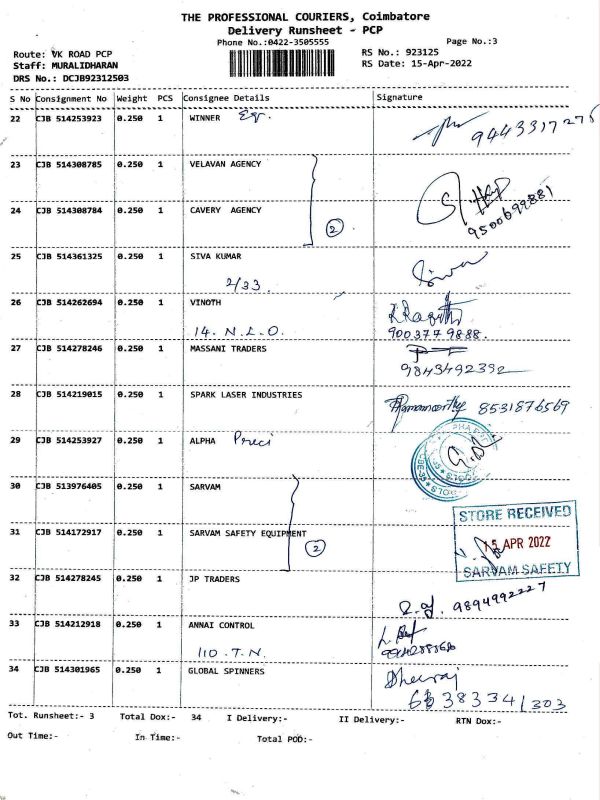 THE PROFESSIONAL COURIERS, Coimbatore
Delivery Runsheet - PCP
Phone No.:0422-3505555
Page No.:3
Route: VK ROAD PCP
RS No.: 923125
Staff: MURALIDHARAN
RS Date: 15-Apr-2022
DRS No.: DCJB92312503
S No Consignment No Weight PCS Consignee Details Signature
22 CJB 514253923 0.250 1 WINNER
9443317276
23 CJB 514308785 0.250 1 VELAVAN AGENCY
24 CJB 514308784 0.250 1 CAVERY AGENCY
2
9500699881
25 CJB 514361325 0.250 1 SIVA KUMAR
Siva
2/33.
26 CJB 514262694 0.250 1 VINOTH
14. N.L.O.
9003779888.
27 CJB 514278246 0.250 1 MASSANI TRADERS
9843492392
28 CJB 514219015 0.250 1 SPARK LASER INDUSTRIES
8531876569
29 CJB 514253927 0.250 1 ALPHA Preci
30 CJB 513976405 0.250 1 SARVAM
STORE RECEIVED
31 CJB 514172917 0.250 1 SARVAM SAFETY EQUIPMENT
2
15 APR 2022
SARVAM SAFETY
32 CJB 514278245 0.250 1 JP TRADERS
9894992227
33 CJB 514212918 0.250 1 ANNAI CONTROL
110 . T.N.
34 CJB 514301965 0.250 1 GLOBAL SPINNERS
Dheeraj
6383341303
Tot. Runsheet:- 3 Total Dox:- 34 I Delivery:- II Delivery:- RTN Dox:-
Out Time:- In Time:- Total POD:-